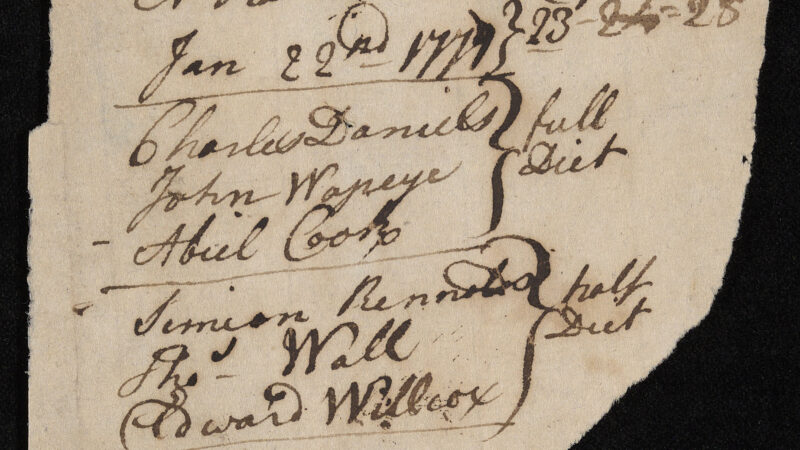 Jan 22nd 1777 } 23 - 24 = 28
Charles Daniels } full
John Wapeye } Diet
- Abiel Cook
Simeon Rennolds } half
Thos Wall } Diet
Edward Willcox